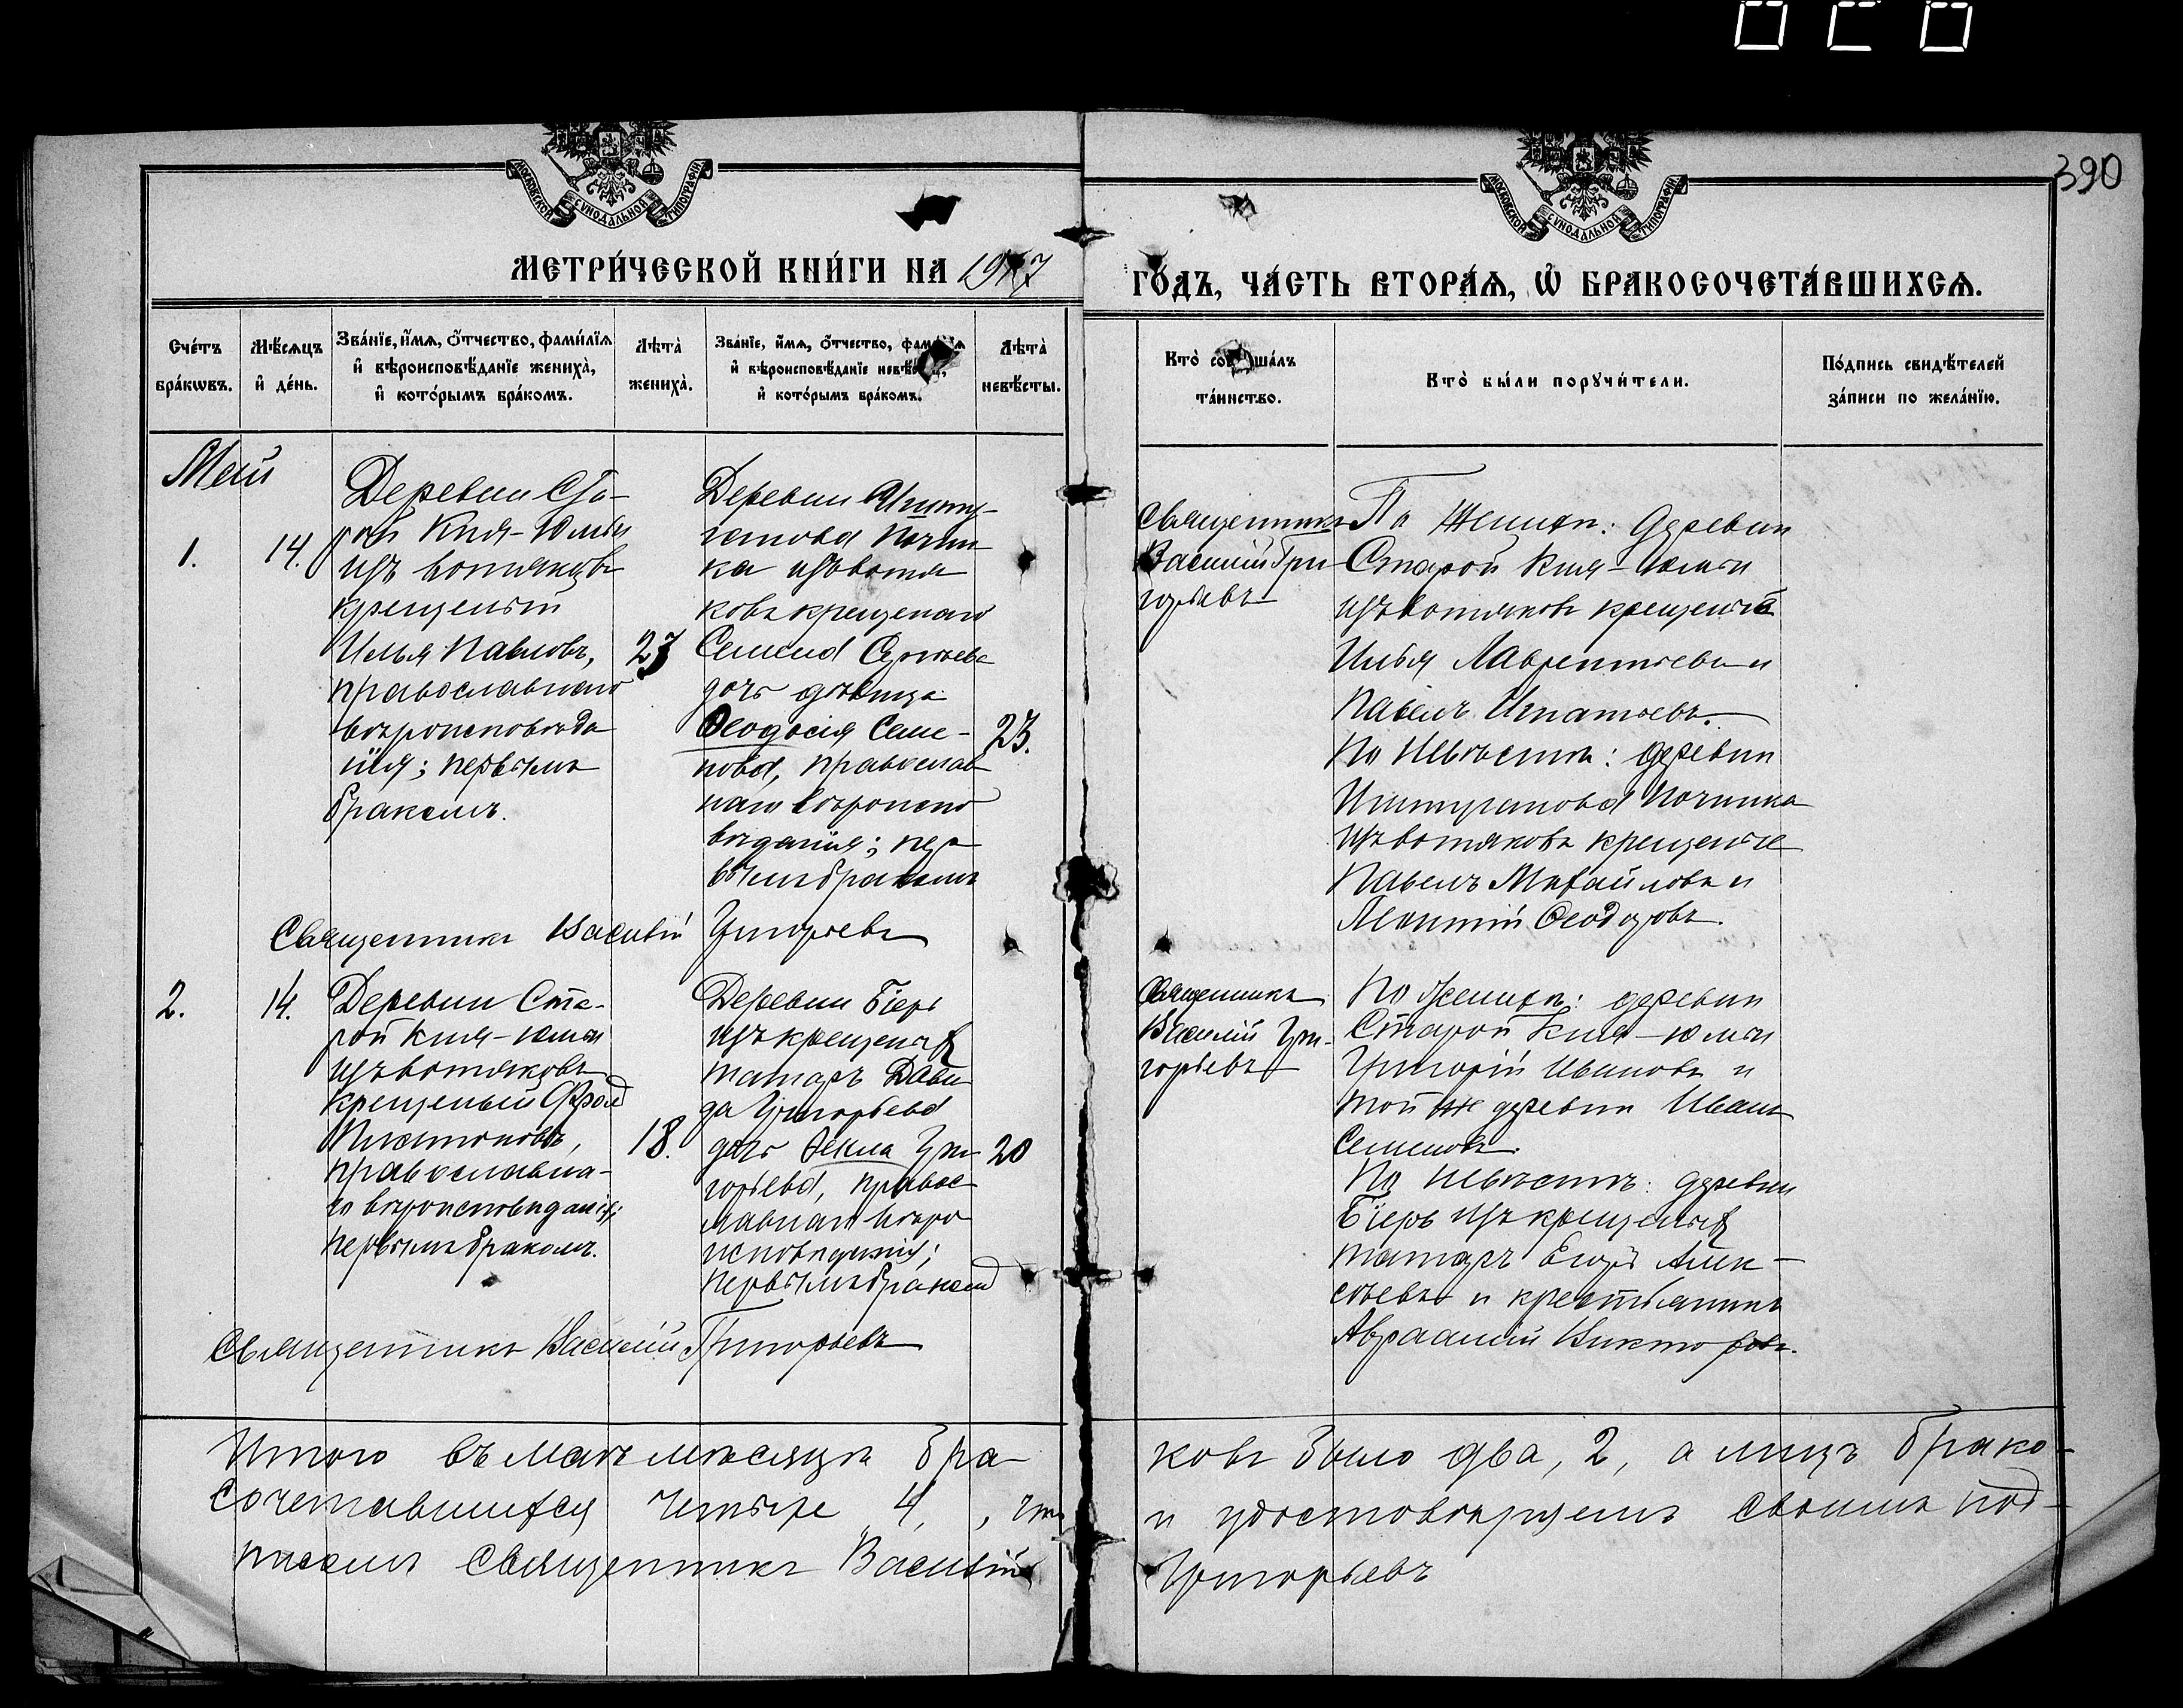 390
МОСКОВСКОЙ СУНОДАЛЬНОЙ ТИПОГРАФІИ
МОСКОВСКОЙ СУНОДАЛЬНОЙ ТИПОГРАФІИ
МЕТРИ́ЧЕСКОЙ КНИ́ГИ НА 1917
ГО́ДЪ, ЧА́СТЬ ВТОРА́Ѧ, Ѡ҆ БРАКОСОЧЕТА́ВШИХСѦ.
Сче́тъ бра́кωвъ.
Мѣ́сяцъ и҆ де́нь.
Зва́нїе, и҆́мѧ, о҆́тчество, фами́лїѧ
и҆ вѣроисповѣ́данїе жениха̀,
и҆ кото́рымъ бра́комъ.
Лѣта̀ жениха̀.
Зва́нїе, и҆́мѧ, о҆́тчество, фами́лїѧ
и҆ вѣроисповѣ́данїе невѣ́сты,
и҆ кото́рымъ бра́комъ.
Лѣта̀ невѣ́сты.
Кто̀ соверша́лъ
та́инство.
Кто̀ бы́ли порꙋчи́тели.
По́дпись свидѣ́телей
за́писи по жела́нїю.
Май
1.
14.
Деревни Ста-
рой Кня-Юмьи
изъ вотяковъ
крещеный
Илья Павловъ,
православнаго
вѣроисповѣда
нія; первымъ
бракомъ.
27
Деревни
Починка
ка изъ вотя
ковъ крещенаго
Семена Сергѣева
дочь дѣвица
Ѳеодосія Семе-
нова, православ
наго вѣроиспо
вѣданія; пер
вымъ бракомъ
23.
Священникъ
Василій Гри
горьевъ
По Женихѣ: деревни
Старой Кня-Юмьи
изъ вотяковъ крещеные
Илья Лаврентьевъ и
Павелъ Игнатьевъ.
По Невѣстѣ: деревни
Починка
изъ вотяковъ крещеные
Павелъ Михайловъ и
Леонтій Ѳеодоровъ.
Священникъ Василій Григорьевъ
2.
14.
Деревни Ста-
рой Кня-Юмьи
изъ вотяковъ
крещеный Фролъ
православна-
го вѣроисповѣданія;
первымъ бракомъ.
18.
Деревни Біерь
изъ крещеныхъ
татаръ Дави
да Григорьева
дочь Ѳекла Гри
горьева, правос
лавнаго вѣро
исповѣданія;
первымъ бракомъ
20
Священникъ
Василій Гри-
горьевъ
По Женихѣ: деревни
Старой Кня-Юмьи
Григорій Ивановъ и
той же деревни Иванъ
Семеновъ.
По Невѣстѣ: деревни
Біерь изъ крещеныхъ
татаръ Егоръ Алек-
сѣевъ и крестьянинъ
Авраамій Викторовъ.
Священникъ Василій Григорьевъ
Итого въ маѣ мѣсяцѣ бра-
ковъ было два, 2, а лицъ брако-
сочетавшихся четыре 4, что
и удостовѣряемъ своимъ под-
писомъ Священникъ Василій
Григорьевъ